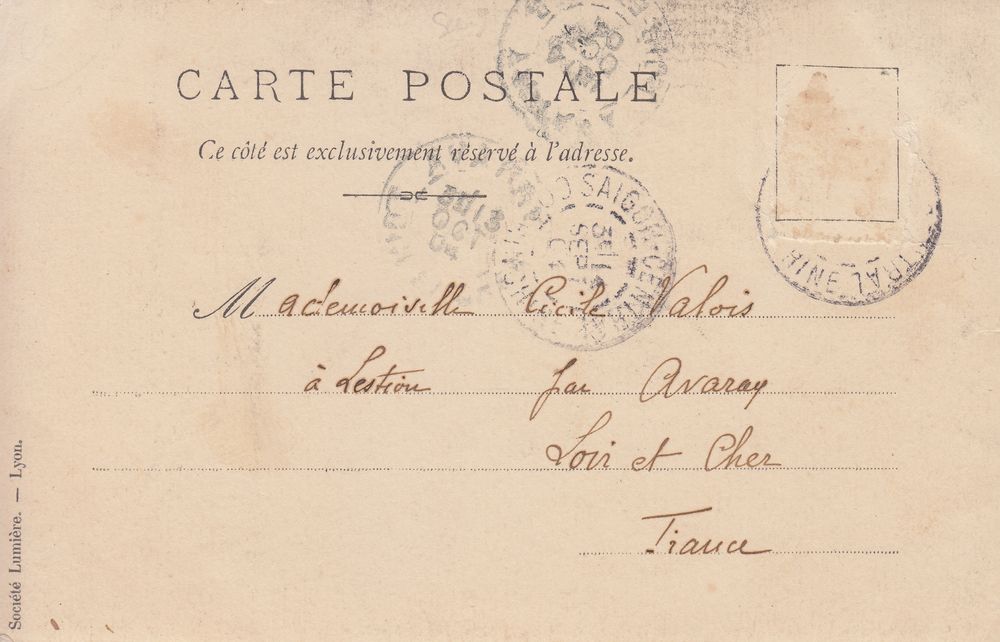 CARTE POSTALE
Ce côté est exclusivement réservé à l'adresse.
SAIGON-CENTRAL
SEPT
13
OCT
04
Mademoiselle Cécile Valois
à Lestiou par Avaray
Loir et Cher
France
Société Lumière. — Lyon.